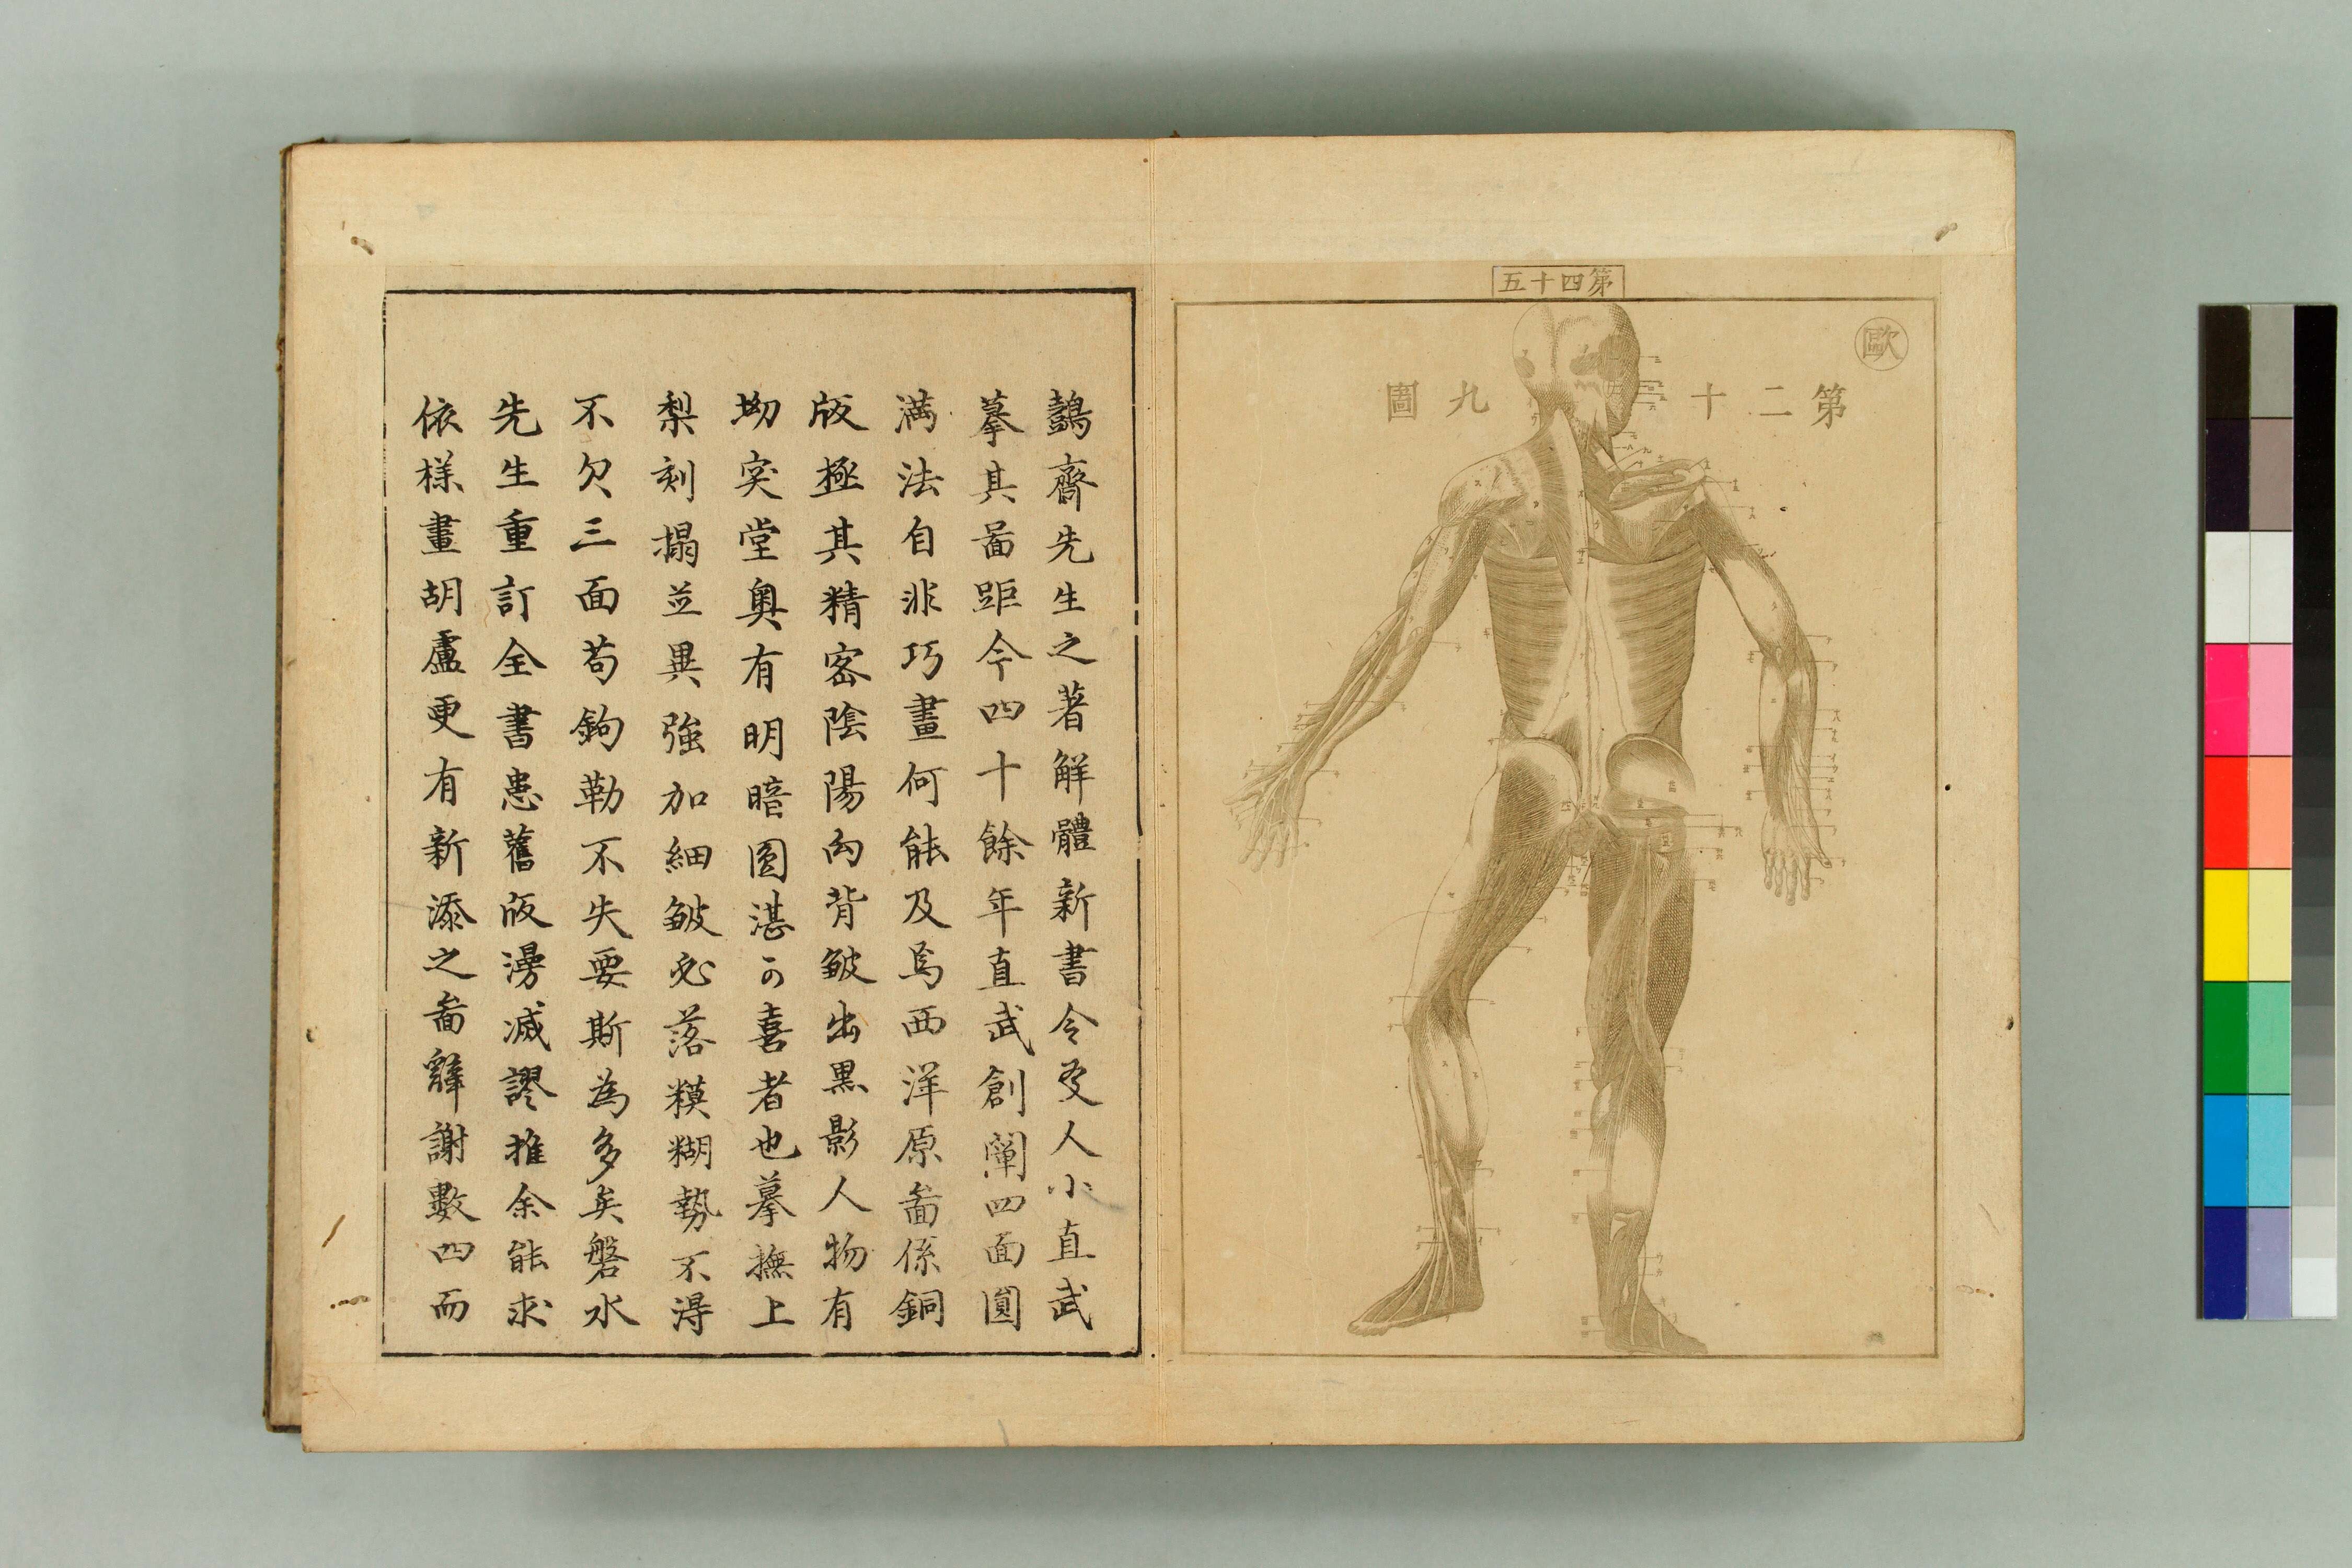 第四十五
歐
第二十九圖
鷧齋先生之著解體新書令友人小直武
摹其啚距今四十餘年直武創闡四面圓
滿法自非巧畫何能及焉西洋原啚係銅
版極其精密陰陽向背皴出黒影人物有
坳突堂奧有明暗圓湛可喜者也摹撫上
梨刻搨並異強加細皴必落糢糊勢不得
不欠三面苟鉤勒不失要斯為多矣磐水
先生重訂全書患舊版漫滅謬推余能求
依樣畫胡盧更有新添之啚辭謝數四而